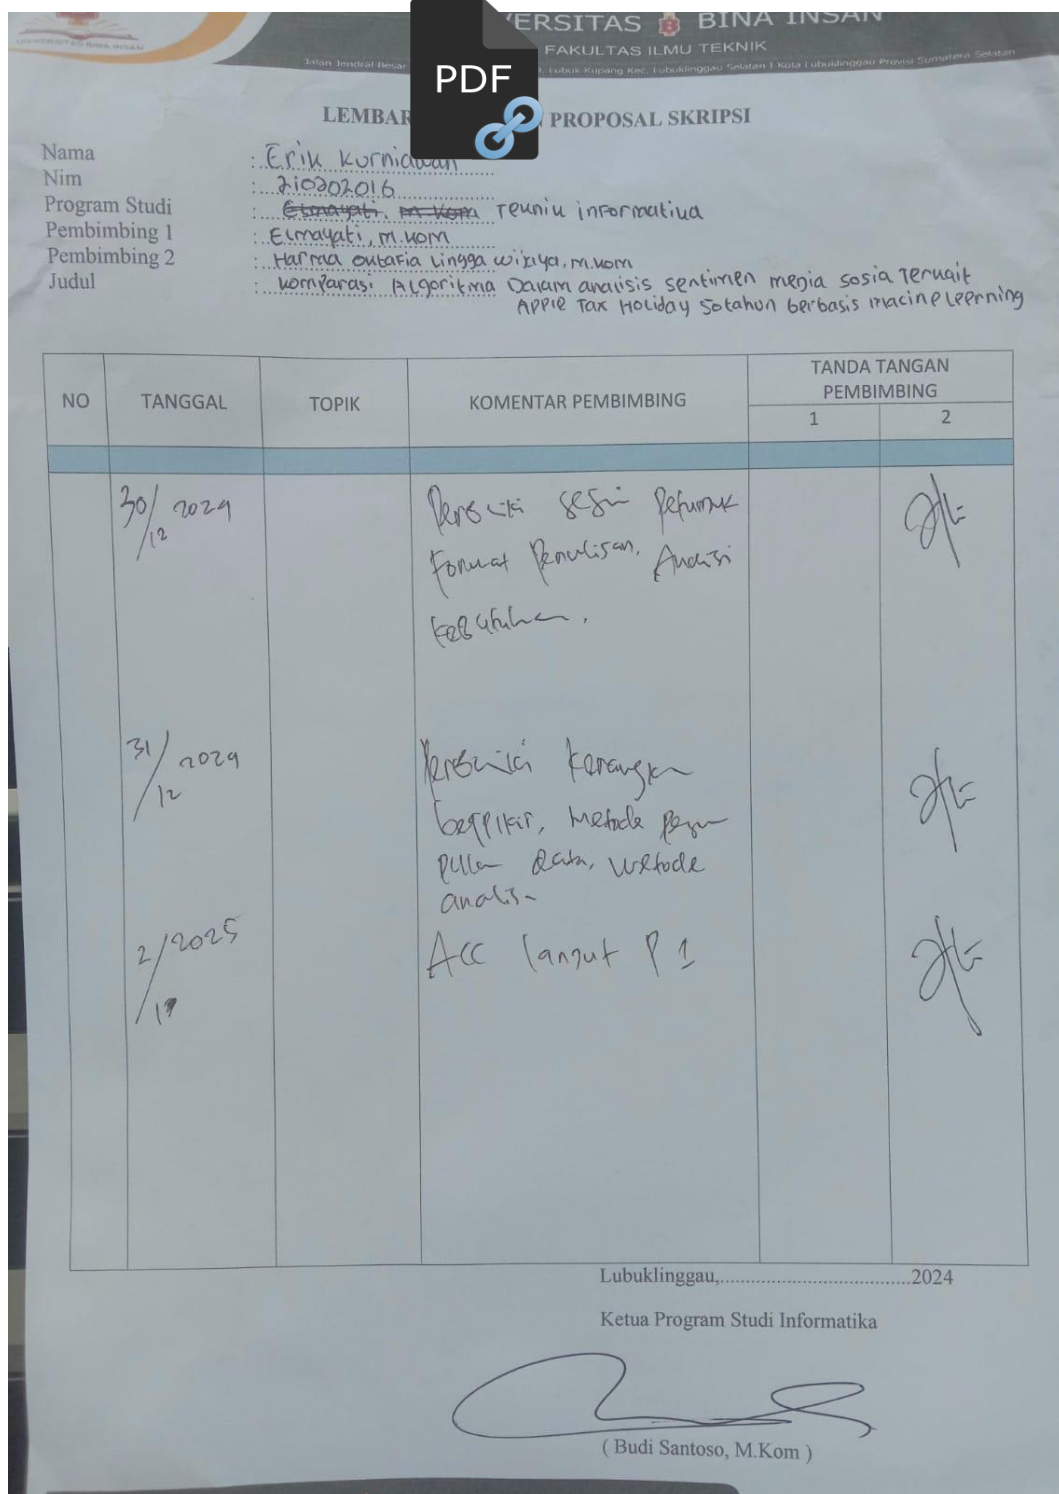 VERSITAS BINA INSAN
UNIVERSITAS BINA INSAN
FAKULTAS ILMU TEKNIK
Jalan Jendral Besar Lubuk Kupang Kec. Lubuklinggau Selatan I Kota Lubuklinggau Provisi Sumatera Selatan
PDF
LEMBAR PROPOSAL SKRIPSI
Nama : Erik Kurniawan
Nim : 210202016
Program Studi : Elmayati, M.Kom Teknik informatika
Pembimbing 1 : Elmayati, M.Kom
Pembimbing 2 : Harma Oktafia Lingga Wijaya, M.Kom
Judul : Komparasi Algoritma Dalam analisis sentimen media sosia Terkait
Apple Tax Holiday 50tahun berbasis macine Leerning
NO TANGGAL TOPIK KOMENTAR PEMBIMBING TANDA TANGAN PEMBIMBING
1 2
30/12 2024 Perbaiki sesuai Petunjuk
Format Penulisan, Analisi
kebutuhan.
31/12 2024 Perbaiki kerangka
berpikir, Metode pengum
pulan data, metode
analisis
2/1 2025 Acc lanjut P 1
Lubuklinggau,......................................2024
Ketua Program Studi Informatika
( Budi Santoso, M.Kom )